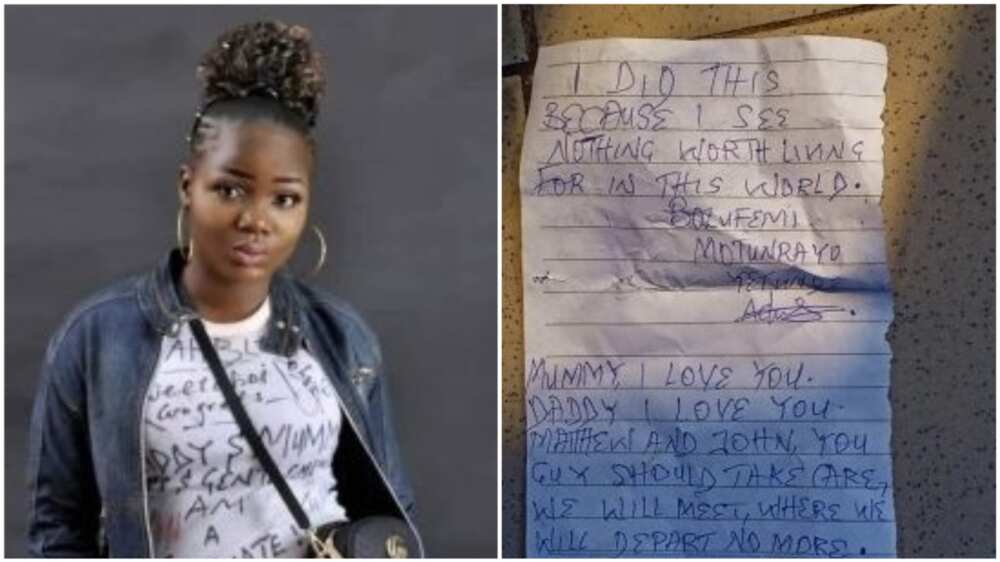 AM
A
I DID THIS
BECAUSE I SEE
NOTHING WORTH LIVING
FOR IN THIS WORLD.
BOLUFEMI
MOTUNRAYO
MUMMY, I LOVE YOU.
DADDY I LOVE YOU
MATHEW AND JOHN, YOU
GUY SHOULD TAKE CARE,
WE WILL MEET, WHERE WE
WILL DEPART NO MORE.